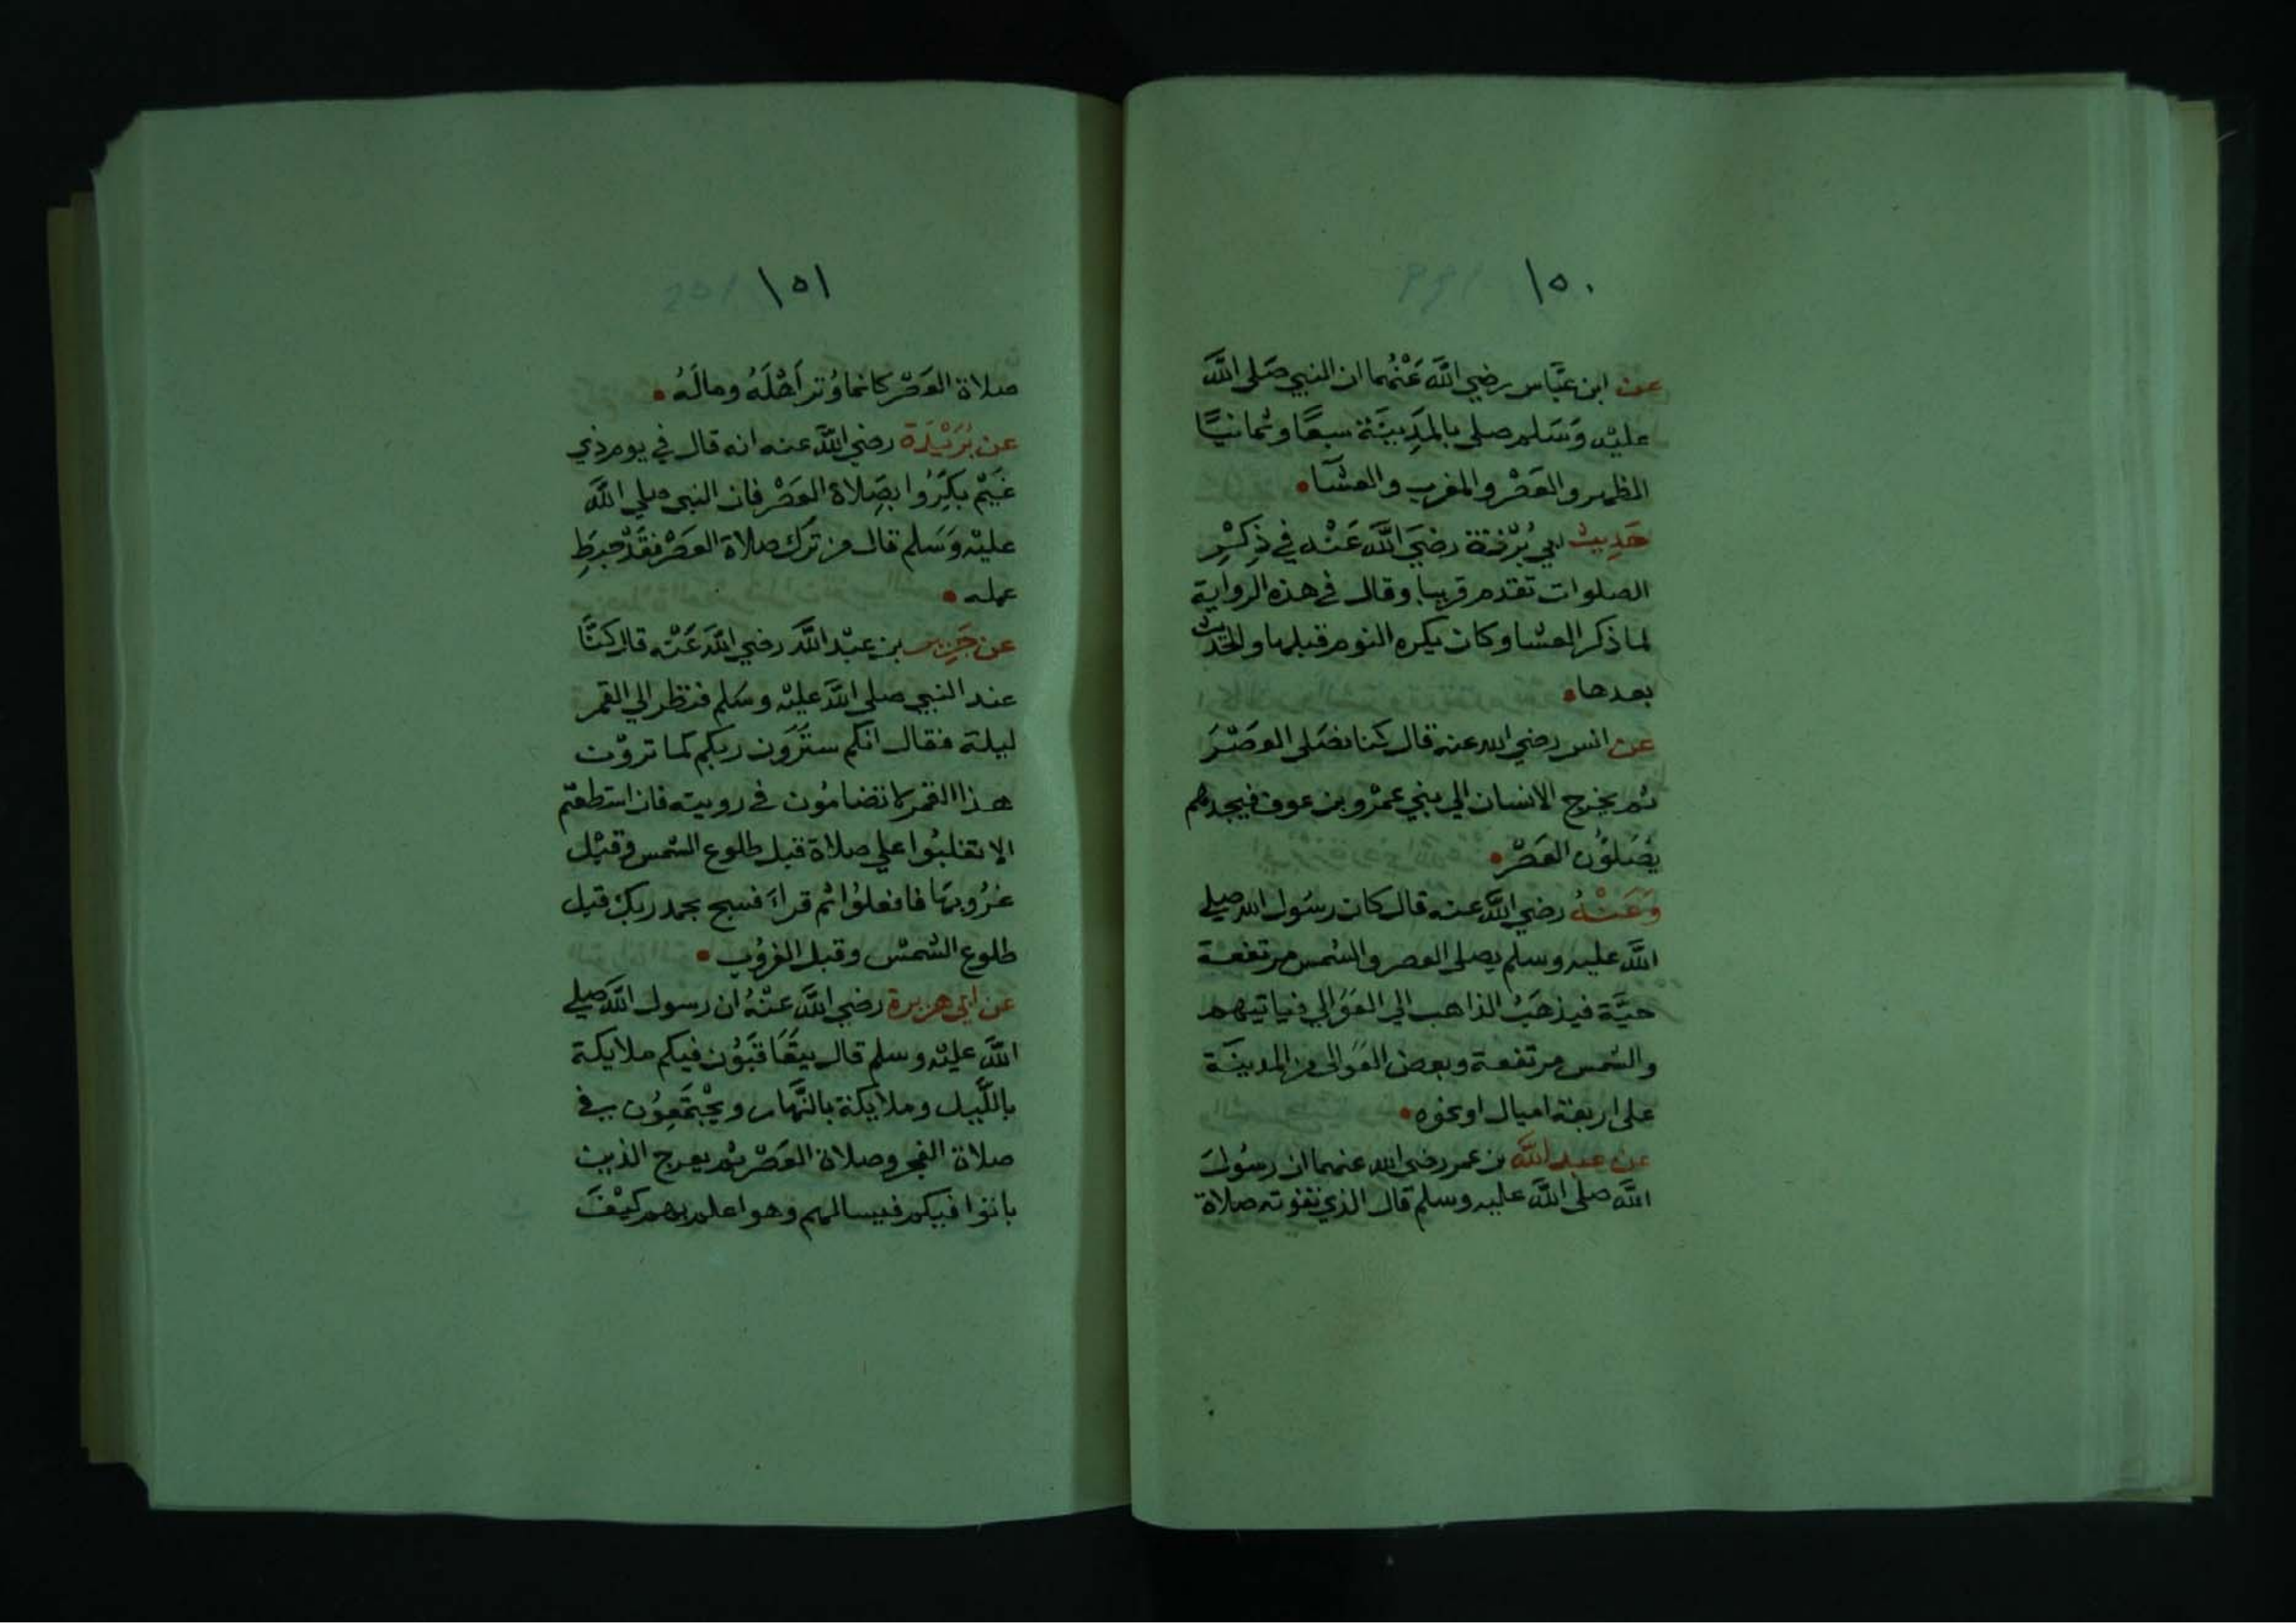 ١٥٠
عن ابن عَبَّاس رضي اللَّه عَنْهُما ان النبي صَلى اللَّه
عليْه وَسَلم صلى بالمَدِينَة سبعًا وثمانيًا
الظهر والعَصْر والمغرب والعشَا
حَدِيث ابي بُرْزة رضيَ اللَّه عَنْه في ذِكْرِ
الصلوات تقدم قريبا وقال في هذه الرواية
لما ذكر العشا وكان يكره النوم قبلها والحَديث
بعدها
عن انس رضي الله عنه قال كنا نصَلى العصْرَ
ثم يخرج الانسان الي بني عمرْو بن عوف فيجدهم
يُصَلوُن العَصْر
وَعَنْهُ رضي اللَّه عنه قال كان رسُول الله صلي
اللَّه عليه وسلم يصلى العصر والشمس مرتفعة
حيَّة فيذهَبُ الذاهب الي العَوَالي فياتيهم
والشمس مرتفعة وبعض العَوالى من المدينَة
على اربعة اميال او نحوه
عن عبد اللَّه بن عمر رضي الله عنهما ان رسُولَ
اللَّه صلى اللَّه عليه وسلم قال الذي تفوته صلاة
١٥١
صلاة العَصْر كانما وُتر اَهْلَهُ ومالَهُ
عن بُرَيْدَة رضي اللَّه عنه انه قال في يوم ذي
غَيْم بَكِّرُوا بصَلاة العَصْر فان النبي صلي اللَّه
عليْه وَسَلم قال من ترَك صلاة العصْر فقَدْ حبِطَ
عمله
عن جَرير بن عبْد اللَّه رضي اللَّه عَنْه قال كنَّا
عند النبي صلى اللَّه عليْه وسَلم فنظر الي القمر
ليلة فقال انكم ستَرَون ربكم كما تروْن
هذا القمر لا تضامُون في رويته فان استطعتم
الا تغلبُوا علي صلاة قبل طلوع الشمس وقبْل
غرُوبهَا فافعلوُا ثم قراَ فسبح بحمد ربك قبل
طلوع الشمسْ وقبل الغرُوب
عن ابى هريرة رضي اللَّه عنْهُ ان رسول اللَّه صلي
اللَّه عليْه وسلم قال يتعَاقبُون فيكم ملايكة
باللَّيل وملايكة بالنَّهار ويجْتَمعِوُن في
صلاة الفجر وصلاة العَصْر ثم يعرج الذين
باتوُا فيكم فيسالهم وهو اعلم بهم كيْفَ